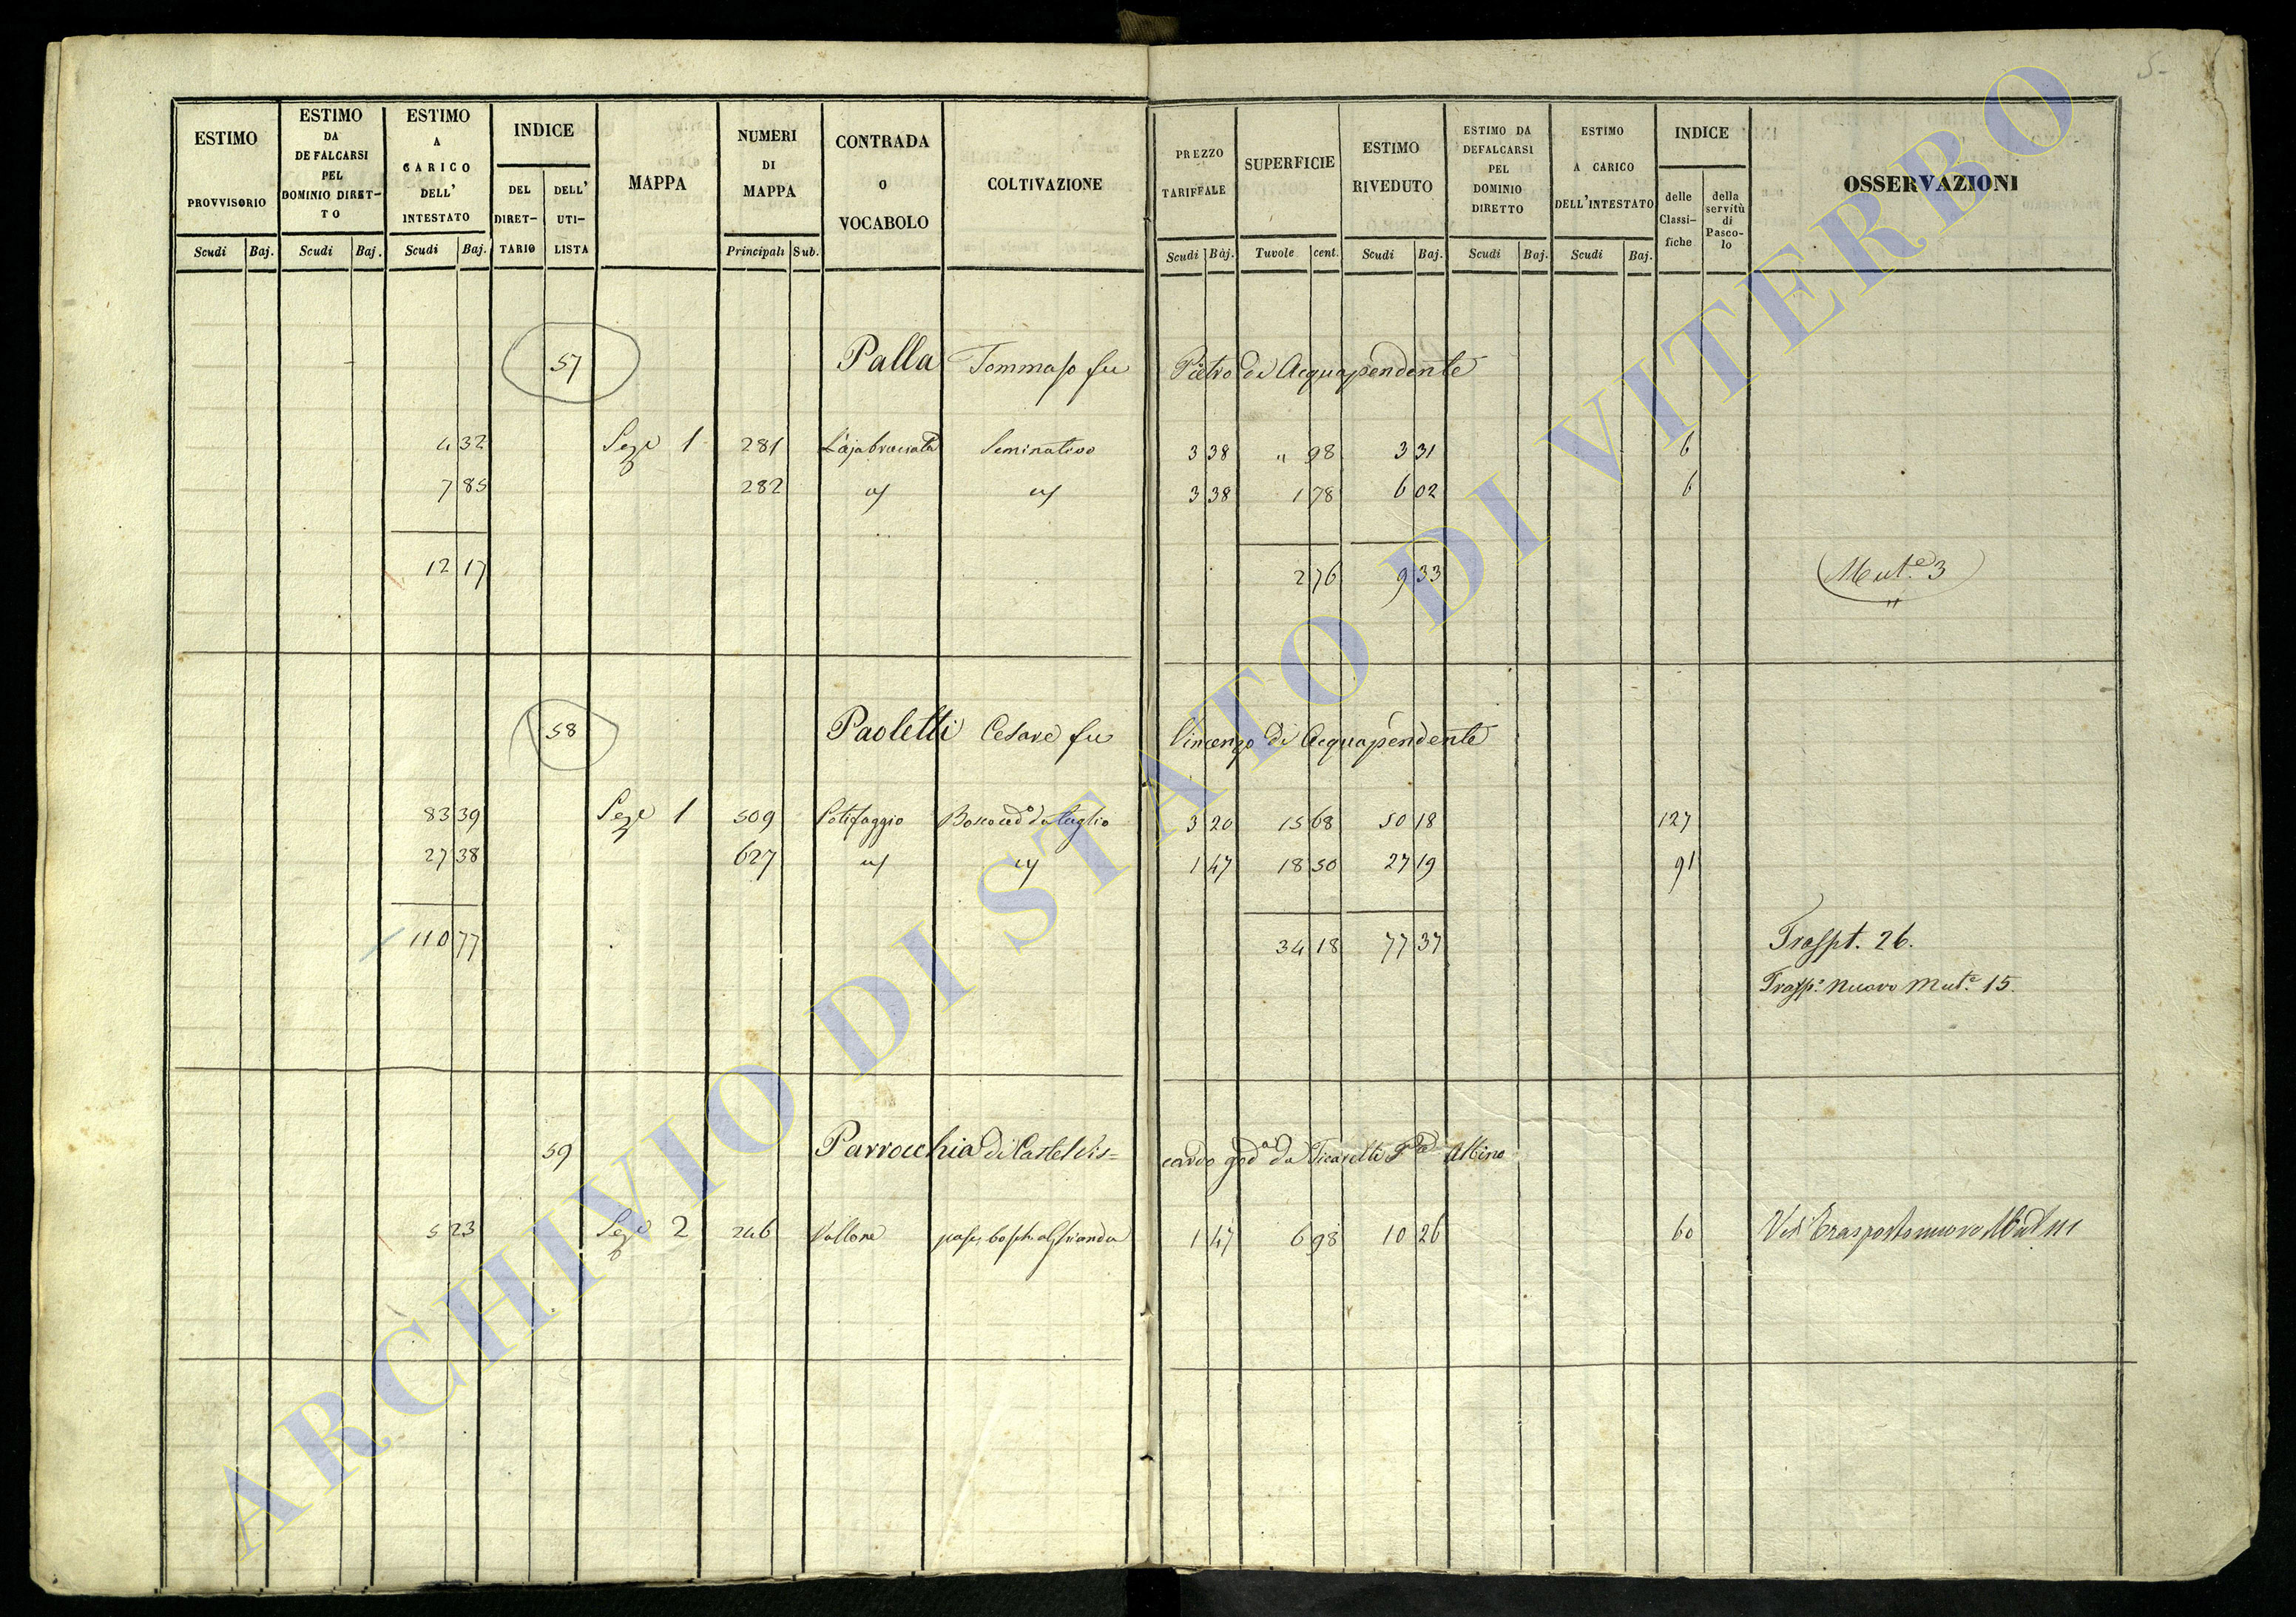 5-
ESTIMO PROVVISORIO
ESTIMO DA DEFALCARSI PEL DOMINIO DIRET-TO
ESTIMO A CARICO DELL' INTESTATO
INDICE
DEL DIRET-TARIO
DELL' UTI-LISTA
MAPPA
NUMERI DI MAPPA
CONTRADA O VOCABOLO
COLTIVAZIONE
PREZZO TARIFFALE
SUPERFICIE
ESTIMO RIVEDUTO
ESTIMO DA DEFALCARSI PEL DOMINIO DIRETTO
ESTIMO A CARICO DELL'INTESTATO
INDICE
delle Classi-fiche
della servitù di Pasco-lo
OSSERVAZIONI
Scudi Baj. Scudi Baj. Scudi Baj. Principali Sub. Scudi Baj. Tavole cent. Scudi Baj. Scudi Baj. Scudi Baj.
57 Palla Tommaso fu Pietro di Acquapendente
4 32 Seze 1 281 Seminativo 3 38 " 98 3 31 6
7 85 282 3 38 1 78 6 02 6
12 17 2 76 9 33 Mut.e 3
58 Paoletti Cesare fu Vincenzo di Acquapendente
83 39 Seze 1 509 da taglio 3 20 15 68 50 18 127
27 38 627 1 47 18 50 27 19 91
110 77 34 18 77 37 Traspt. 26.
Trasp.o Nuovo Mut.e 15.
59 Parrocchia di Castel Vis=cardo god.a da
5 23 Seze 2 246 Vallone 1 47 6 98 10 26 60 trasporto nuovo
ARCHIVIO DI STATO DI VITERBO